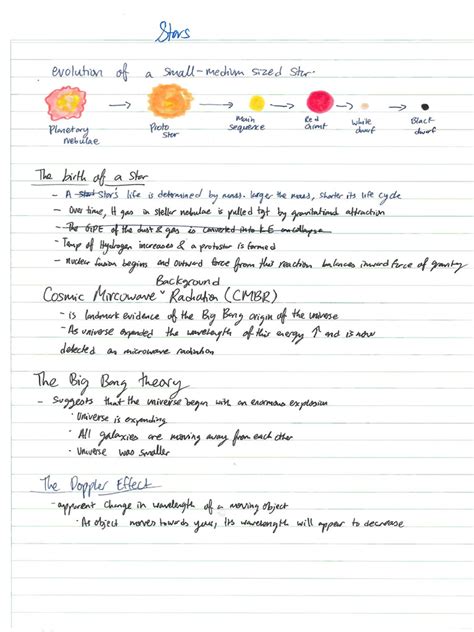 Stars
evolution of a small-medium sized star.
Planetary nebulae
Proto Star
Main sequence
Red Giant
White dwarf
Black dwarf
The birth of a Star
- A Star's life is determined by mass. larger the mass, shorter its life cycle
- Over time, H gas in stellar nebulae is pulled tgt by gravitational attraction
- The GPE of the dust & gas is converted into KE on collapse
- Temp of Hydrogen increases & a protostar is formed
- Nuclear fusion begins and outward force from this reaction balances inward force of gravity
Background
Cosmic Mircowave Radiation (CMBR)
- is landmark evidence of the Big Bang origin of the universe
- As universe expanded the wavelength of this energy ↑ and is now
detected as microwave radiation
The Big Bang theory
- Suggests that the universe began with an enormous explosion
· Universe is expanding
· All galaxies are moving away from each other
· Universe was smaller
The Doppler Effect
- apparent change in wavelength of a moving object
· As object moves towards you, its wavelength will appear to decrease